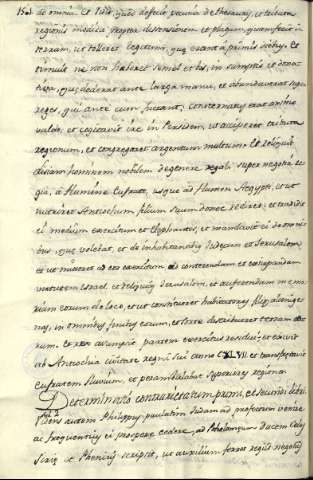 de omnia. Et vidit, quod defecit pecunia de thesauris, et tributa
regionis modica propter dissensionem et plagam, quam fecit in
terram, ut tolleret legitima, quae erant à primis diebus. et
timuit ne non haberet semel et bis, in sumptus et dona-
tiva, quae dederat ante larga manu, et abundaverat super
reges, qui ante eum fuerant, consternatus erat animo
valde, et cogitavit ire in Persidem, ut acciperet tributa
regionum, et congregaret argentum multum. Et reliquit
Lisiam hominem nobilem de genere regali super negotia re-
gia, à flumine Eufrate usque ad flumen Aegypti, et ut
nutriret Antiochum filium suum donec rediret, et tradidit
ei medium exercitum et Elephantes, et mandavit ei de omni-
bus, quae volebat, et de inhabitantibus Iudaeam et Jerusalem,
et ut mitteret ad eos exercitum ad conterendam et extirpandam
virtutem Israel, et reliquias Jerusalem, et auferendam me mo-
riam eorum de loco, et ut constitueret habitatores filios alienige-
nas, in omnibus finibus eorum, et sorte distribueret terram eo-
rum. Et rex assumpsit partem exercitus residui, et exivit
ab Antiochia civitate regni sui anno CXLVII et transfretavit
eufratem fluvium, et perambulabat superiores regiones
Determinatio concurrentium primi, et secundi libri.
dens autem Philippus paulatim Iudam ad profectum venire
ac frequentius ei prospere cedere, ad Ptholomaeum ducem Cely-
Syriae et Phenicis scripsit, ut auxilium ferret regiis negotiis